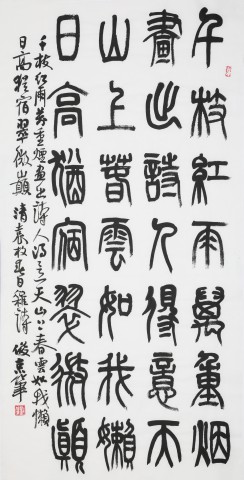 千枝紅雨萬重烟
畫出詩人得意天
山上春雲如我嬾
日高猶宿翠微顛
千枝紅雨萬重煙畫出詩人得意天山上春雲如我懶
日高猶宿翠微巔 清袁枚春日雜詩